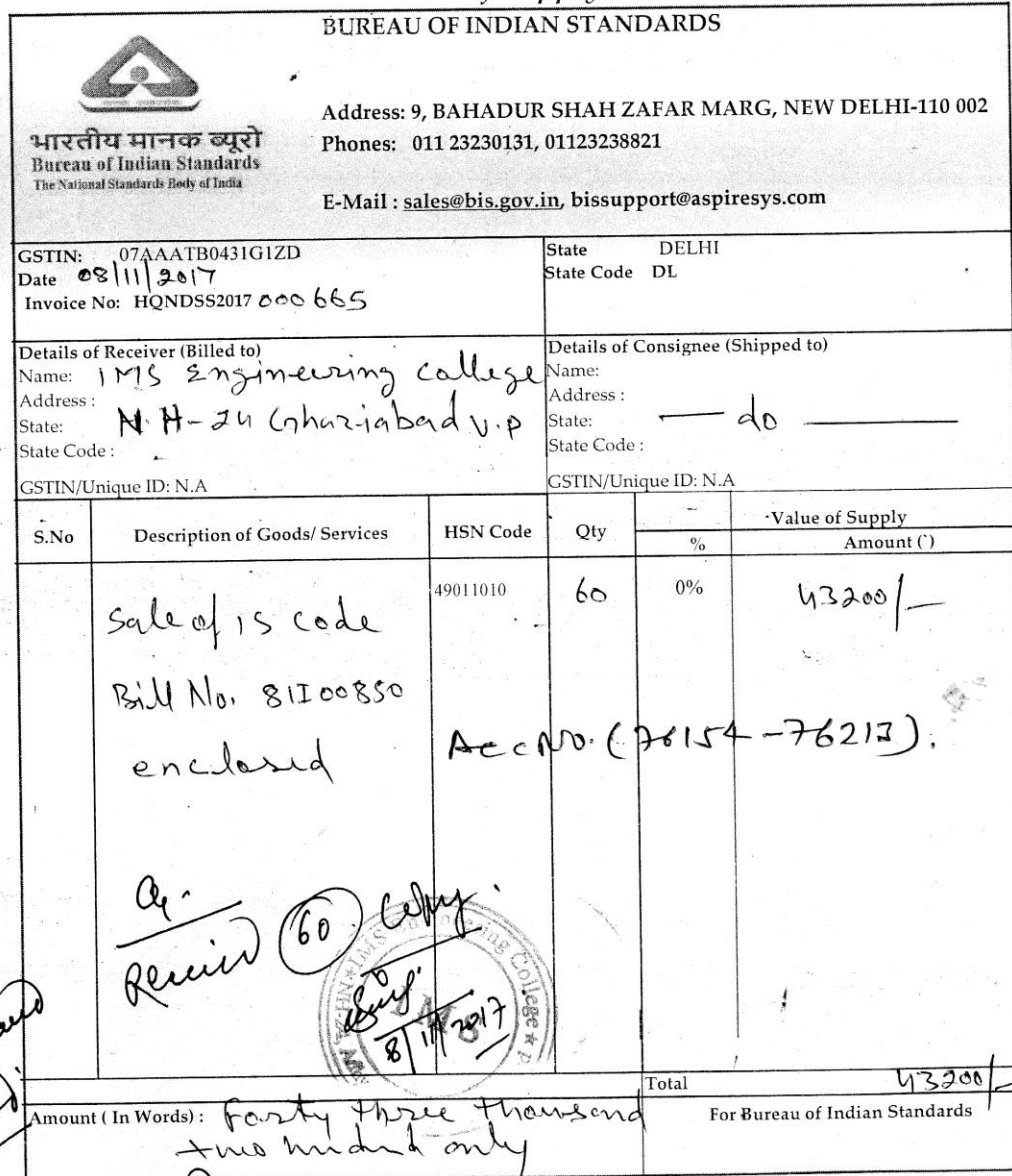 BUREAU OF INDIAN STANDARDS
भारतीय मानक ब्यूरो
Bureau of Indian Standards
The National Standards Body of India
Address: 9, BAHADUR SHAH ZAFAR MARG, NEW DELHI-110 002
Phones: 011 23230131, 01123238821
E-Mail : sales@bis.gov.in, bissupport@aspiresys.com
GSTIN: 07AAATB0431G1ZD
Date 08/11/2017
Invoice No: HQNDSS2017 000665
State DELHI
State Code DL
Details of Receiver (Billed to)
Name: IMS Engineering College
Address :
State: N.H-24 Ghaziabad U.P
State Code :
GSTIN/Unique ID: N.A
Details of Consignee (Shipped to)
Name:
Address :
State: — do —
State Code :
GSTIN/Unique ID: N.A
S.No Description of Goods/ Services HSN Code Qty % Value of Supply
Amount (`)
Sale of IS code 49011010 60 0% 43200/-
Bill No. 81I00850
enclosed
Acc No. (76154-76213).
60 Copy
IMS Engineering College
IMS
8/11/2017
Total 43200/-
Amount ( In Words) : Forty three thousand
two hundred only
For Bureau of Indian Standards